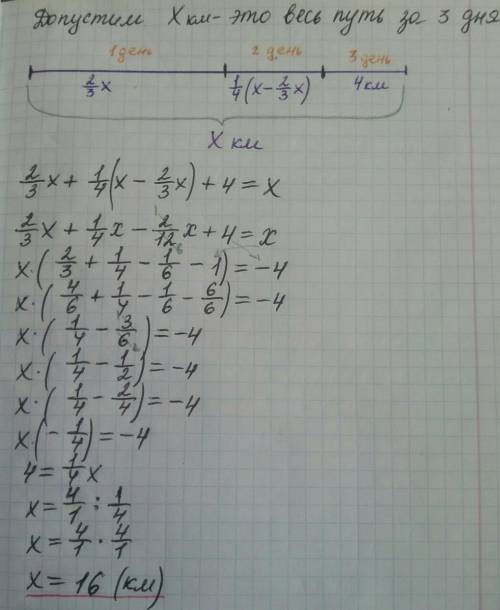 Допустим X км - это весь путь за 3 дня
1 день 2 день 3 день
2/3 x 1/4(x - 2/3 x) 4 км
X км
2/3 x + 1/4(x - 2/3 x) + 4 = x
2/3 x + 1/4 x - 2/12 x + 4 = x
x · (2/3 + 1/4 - 1/6 - 1) = -4
x · (4/6 + 1/4 - 1/6 - 6/6) = -4
x · (1/4 - 3/6) = -4
x · (1/4 - 1/2) = -4
x · (1/4 - 2/4) = -4
x (- 1/4) = -4
4 = 1/4 x
x = 4/1 : 1/4
x = 4/1 · 4/1
x = 16 (км)